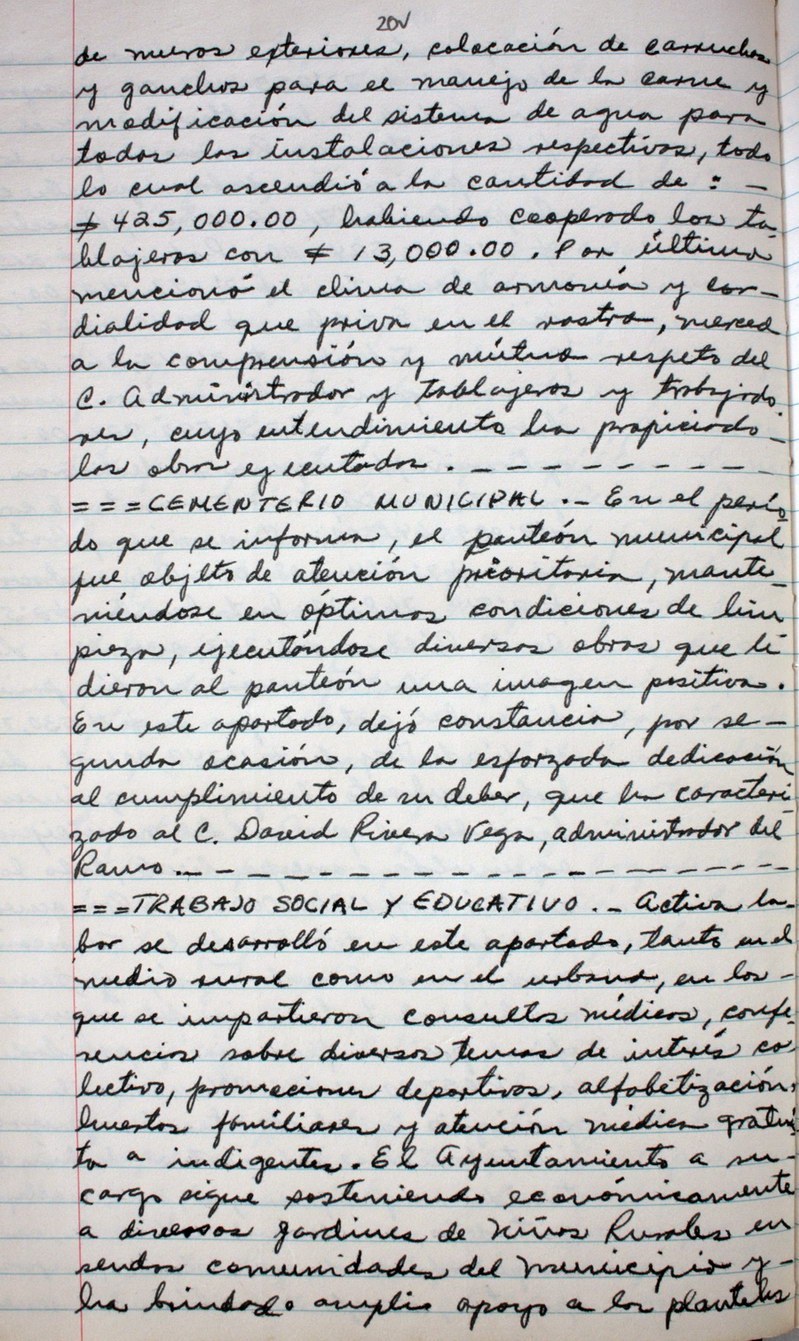 20v
de muros exteriores, colocación de carruchas
y ganchos para el manejo de la carne y
modificación del sistema de agua para
todas las instalaciones respectivas, todo
lo cual ascendió a la cantidad de : —
$ 425,000.00, habiendo cooperado los ta
blajeros con $ 13,000.00. Por último
mencionó el clima de armonía y cor—
dialidad que priva en el rastro, merced
a la comprensión y mútuo respeto del
C. Administrador y tablajeros y trabajado
res, cuyo entendimiento ha propiciado —
las obras ejecutadas. — — — — — — — —
= = = CEMENTERIO MUNICIPAL. — En el perío
do que se informa, el panteón municipal
fue objeto de atención prioritaria, mante
niéndose en óptimas condiciones de lim
pieza, ejecutándose diversas obras que le
dieron al panteón una imagen positiva.
En este apartado, dejó constancia, por se—
gunda ocasión, de la esforzada dedicación
al cumplimiento de su deber, que ha caracteri
zado al C. David Rivera Vega, administrador del
Ramo. — — — — — — — — — — — — — — — — —
= = = TRABAJO SOCIAL Y EDUCATIVO. — Activa la—
bor se desarrolló en este apartado, tanto en el
medio rural como en el urbano, en los —
que se impartieron consultas médicas, confe—
rencias sobre diversos temas de interés co
lectivo, promociones deportivas, alfabetización,
huertos familiares y atención médica gratui
ta a indigentes. El Ayuntamiento a su—
cargo sigue sosteniendo económicamente
a diversos Jardines de Niños Rurales en
sendas comunidades del Municipio y —
ha brindado amplio apoyo a los planteles